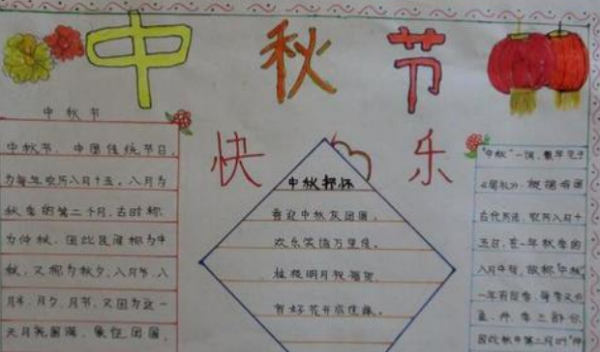 中秋节
快乐
中秋节
中秋节,中国传统节日,
为每年农历八月十五。八月为
秋季的第二个月,古时称
为仲秋,因此民间称为中
秋,又称为秋夕,八月节,八
月半,月夕,月节,又因为这一
天月亮圆满,象征团圆,
中秋抒怀
喜迎中秋庆团圆,
欢乐笑语万里传。
桂枝明月祝福贺,
"中秋"一词,最早见于
《周礼》。根据我国
古代历法,农历八月十
五日,在一年秋季的
八月中旬,故称"中秋"。
一年有四季,每季又分
孟、仲、季三部分,
因故秋中第二月叫"仲